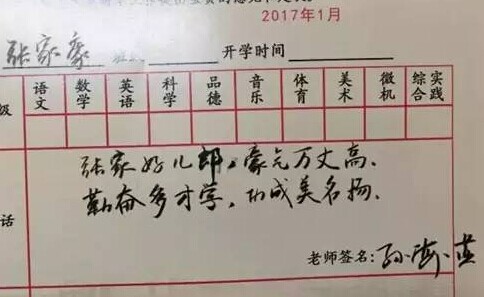 2017年1月
张家豪 开学时间
级 语文 数学 英语 科学 品德 音乐 体育 美术 微机 综合实践
张家好儿郎,豪气万丈高,
勤奋多才学,功成美名扬.
话
老师签名:孙海燕